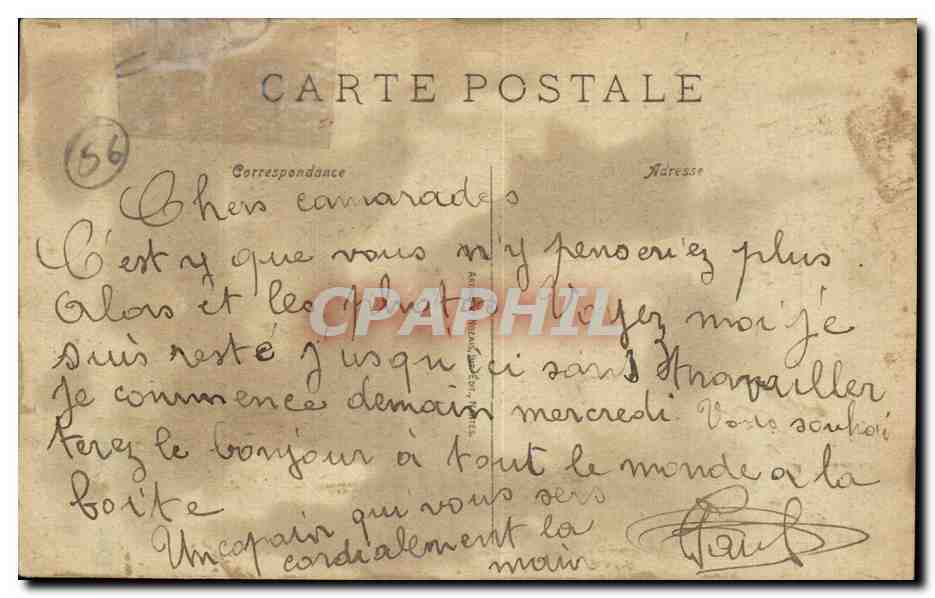 CARTE POSTALE
56
Correspondance
Adresse
Chers camarades
C'est y que vous n'y penseriez plus
Alors et les photos Voyez moi je
suis resté jusqu'ici sans travailler
Je commence demain mercredi. Vous souhai
terez le bonjour à tout le monde a la
boite
Un copain qui vous sers
cordialement la
main
Paul
CPAPHIL
NANTES.